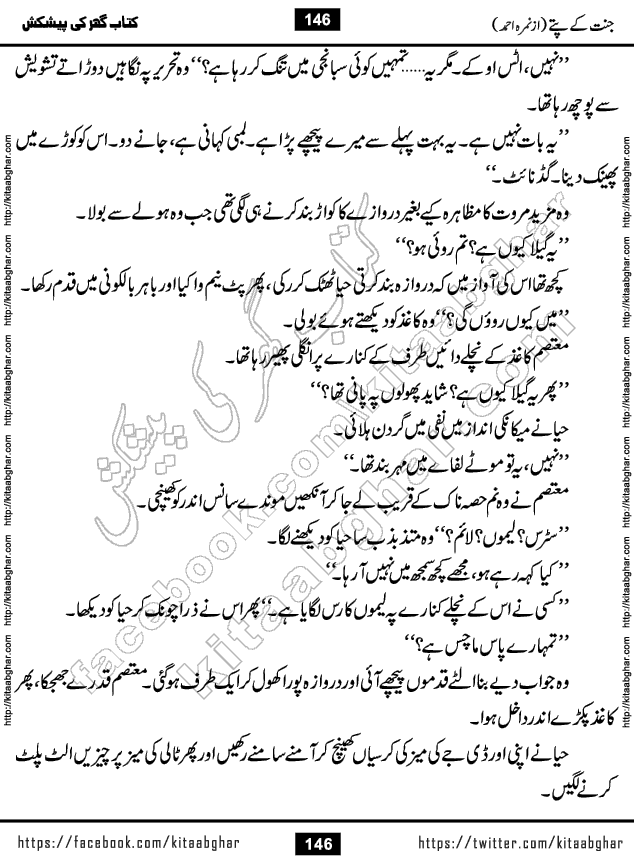 جنت کے پتے (از نمرہ احمد)
146
کتاب گھر کی پیشکش
’’نہیں، اٹس اوکے۔ مگر یہ......تمہیں کوئی سبانجی میں تنگ کر رہا ہے؟‘‘ وہ تحریر پہ نگاہیں دوڑاتے تشویش
سے پوچھ رہا تھا۔
’’یہ بات نہیں ہے۔ یہ بہت پہلے سے میرے پیچھے پڑا ہے۔ لمبی کہانی ہے، جانے دو۔ اس کو کوڑے میں
پھینک دینا۔ گڈ نائٹ۔‘‘
وہ مزید مروت کا مظاہرہ کیے بغیر دروازے کا کواڑ بند کرنے ہی لگی تھی جب وہ ہولے سے بولا۔
’’یہ گیلا کیوں ہے؟ تم روئی ہو؟‘‘
کچھ تھا اس کی آواز میں کہ دروازہ بند کرتی حیا ٹھٹک کر رکی، پھر پٹ نیم وا کیا اور باہر بالکونی میں قدم رکھا۔
’’میں کیوں روؤں گی؟‘‘ وہ کاغذ کو دیکھتے ہوئے بولی۔
معتصم کاغذ کے نچلے دائیں طرف کے کنارے پر انگلی پھیر رہا تھا۔
’’پھر یہ گیلا کیوں ہے؟ شاید پھولوں پہ پانی تھا؟‘‘
حیا نے میکانکی انداز میں نفی میں گردن ہلائی۔
’’نہیں، یہ تو موٹے لفافے میں مہر بند تھا۔‘‘
معتصم نے وہ نم حصہ ناک کے قریب لے جا کر آنکھیں موندے سانس اندر کو کھینچی۔
’’سٹرس؟ لیموں؟ لائم؟‘‘ وہ متذبذب سا حیا کو دیکھنے لگا۔
’’کیا کہہ رہے ہو، مجھے کچھ سمجھ میں نہیں آ رہا۔‘‘
’’کسی نے اس کے نچلے کنارے پہ لیموں کا رس لگایا ہے۔‘‘ پھر اس نے ذرا چونک کر حیا کو دیکھا۔
’’تمہارے پاس ماچس ہے؟‘‘
وہ جواب دیے بنا الٹے قدموں پیچھے آئی اور دروازہ پورا کھول کر ایک طرف ہو گئی۔ معتصم قدرے جھجکا، پھر
کاغذ پکڑے اندر داخل ہوا۔
حیا نے اپنی اور ڈی جے کی میز کی کرسیاں کھینچ کر آمنے سامنے رکھیں اور پھر ٹالی کی میز پر چیزیں الٹ پلٹ
کرنے لگیں۔
کتاب گھر کی پیشکش
facebook.com/kitaabghar
kitaabghar.com
http://kitaabghar.com http://kitaabghar.com http://kitaabghar.com http://kitaabghar.com http://kitaabghar.com http://kitaabghar.com
http://kitaabghar.com http://kitaabghar.com http://kitaabghar.com http://kitaabghar.com http://kitaabghar.com http://kitaabghar.com
https://facebook.com/kitaabghar
146
https://twitter.com/kitaabghar